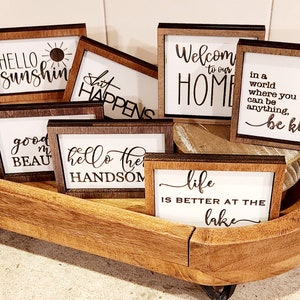 HELLO
sunshin
shit
HAPPENS
Welcome
to our
HOME
in a
world
where you
can be
anything,
be ki
good
m
BEAU
hello the
HANDSOM
life
IS BETTER AT THE
lake